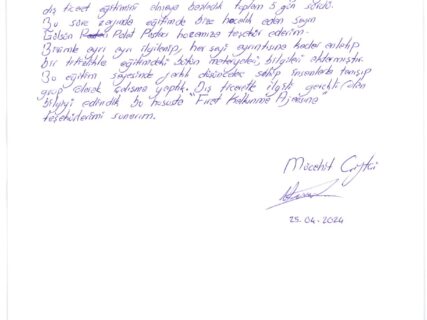 dış ticaret eğitimini almaya başladık toplam 5 gün sürdü.
Bu süre zarfında eğitimde bize hocalık eden sayın
Gülsün Polat hocamıza teşekkür ederim.
Bizimle ayrı ayrı ilgilenip, her şeyi ayrıntısına kadar anlatıp
bir titizlikle eğitimdeki bütün materyalleri, bilgileri aktarmıştır.
Bu eğitim sayesinde farklı düşüncelere sahip insanlarla tanışıp
grup olarak çalışma yaptık. Dış ticaretle ilgili gerekli olan
bilgiyi edindik bu hususta "Fırat Kalkınma Ajansına"
teşekkürlerimi sunarım.
Mücahit Çiftçi
25.04.2024